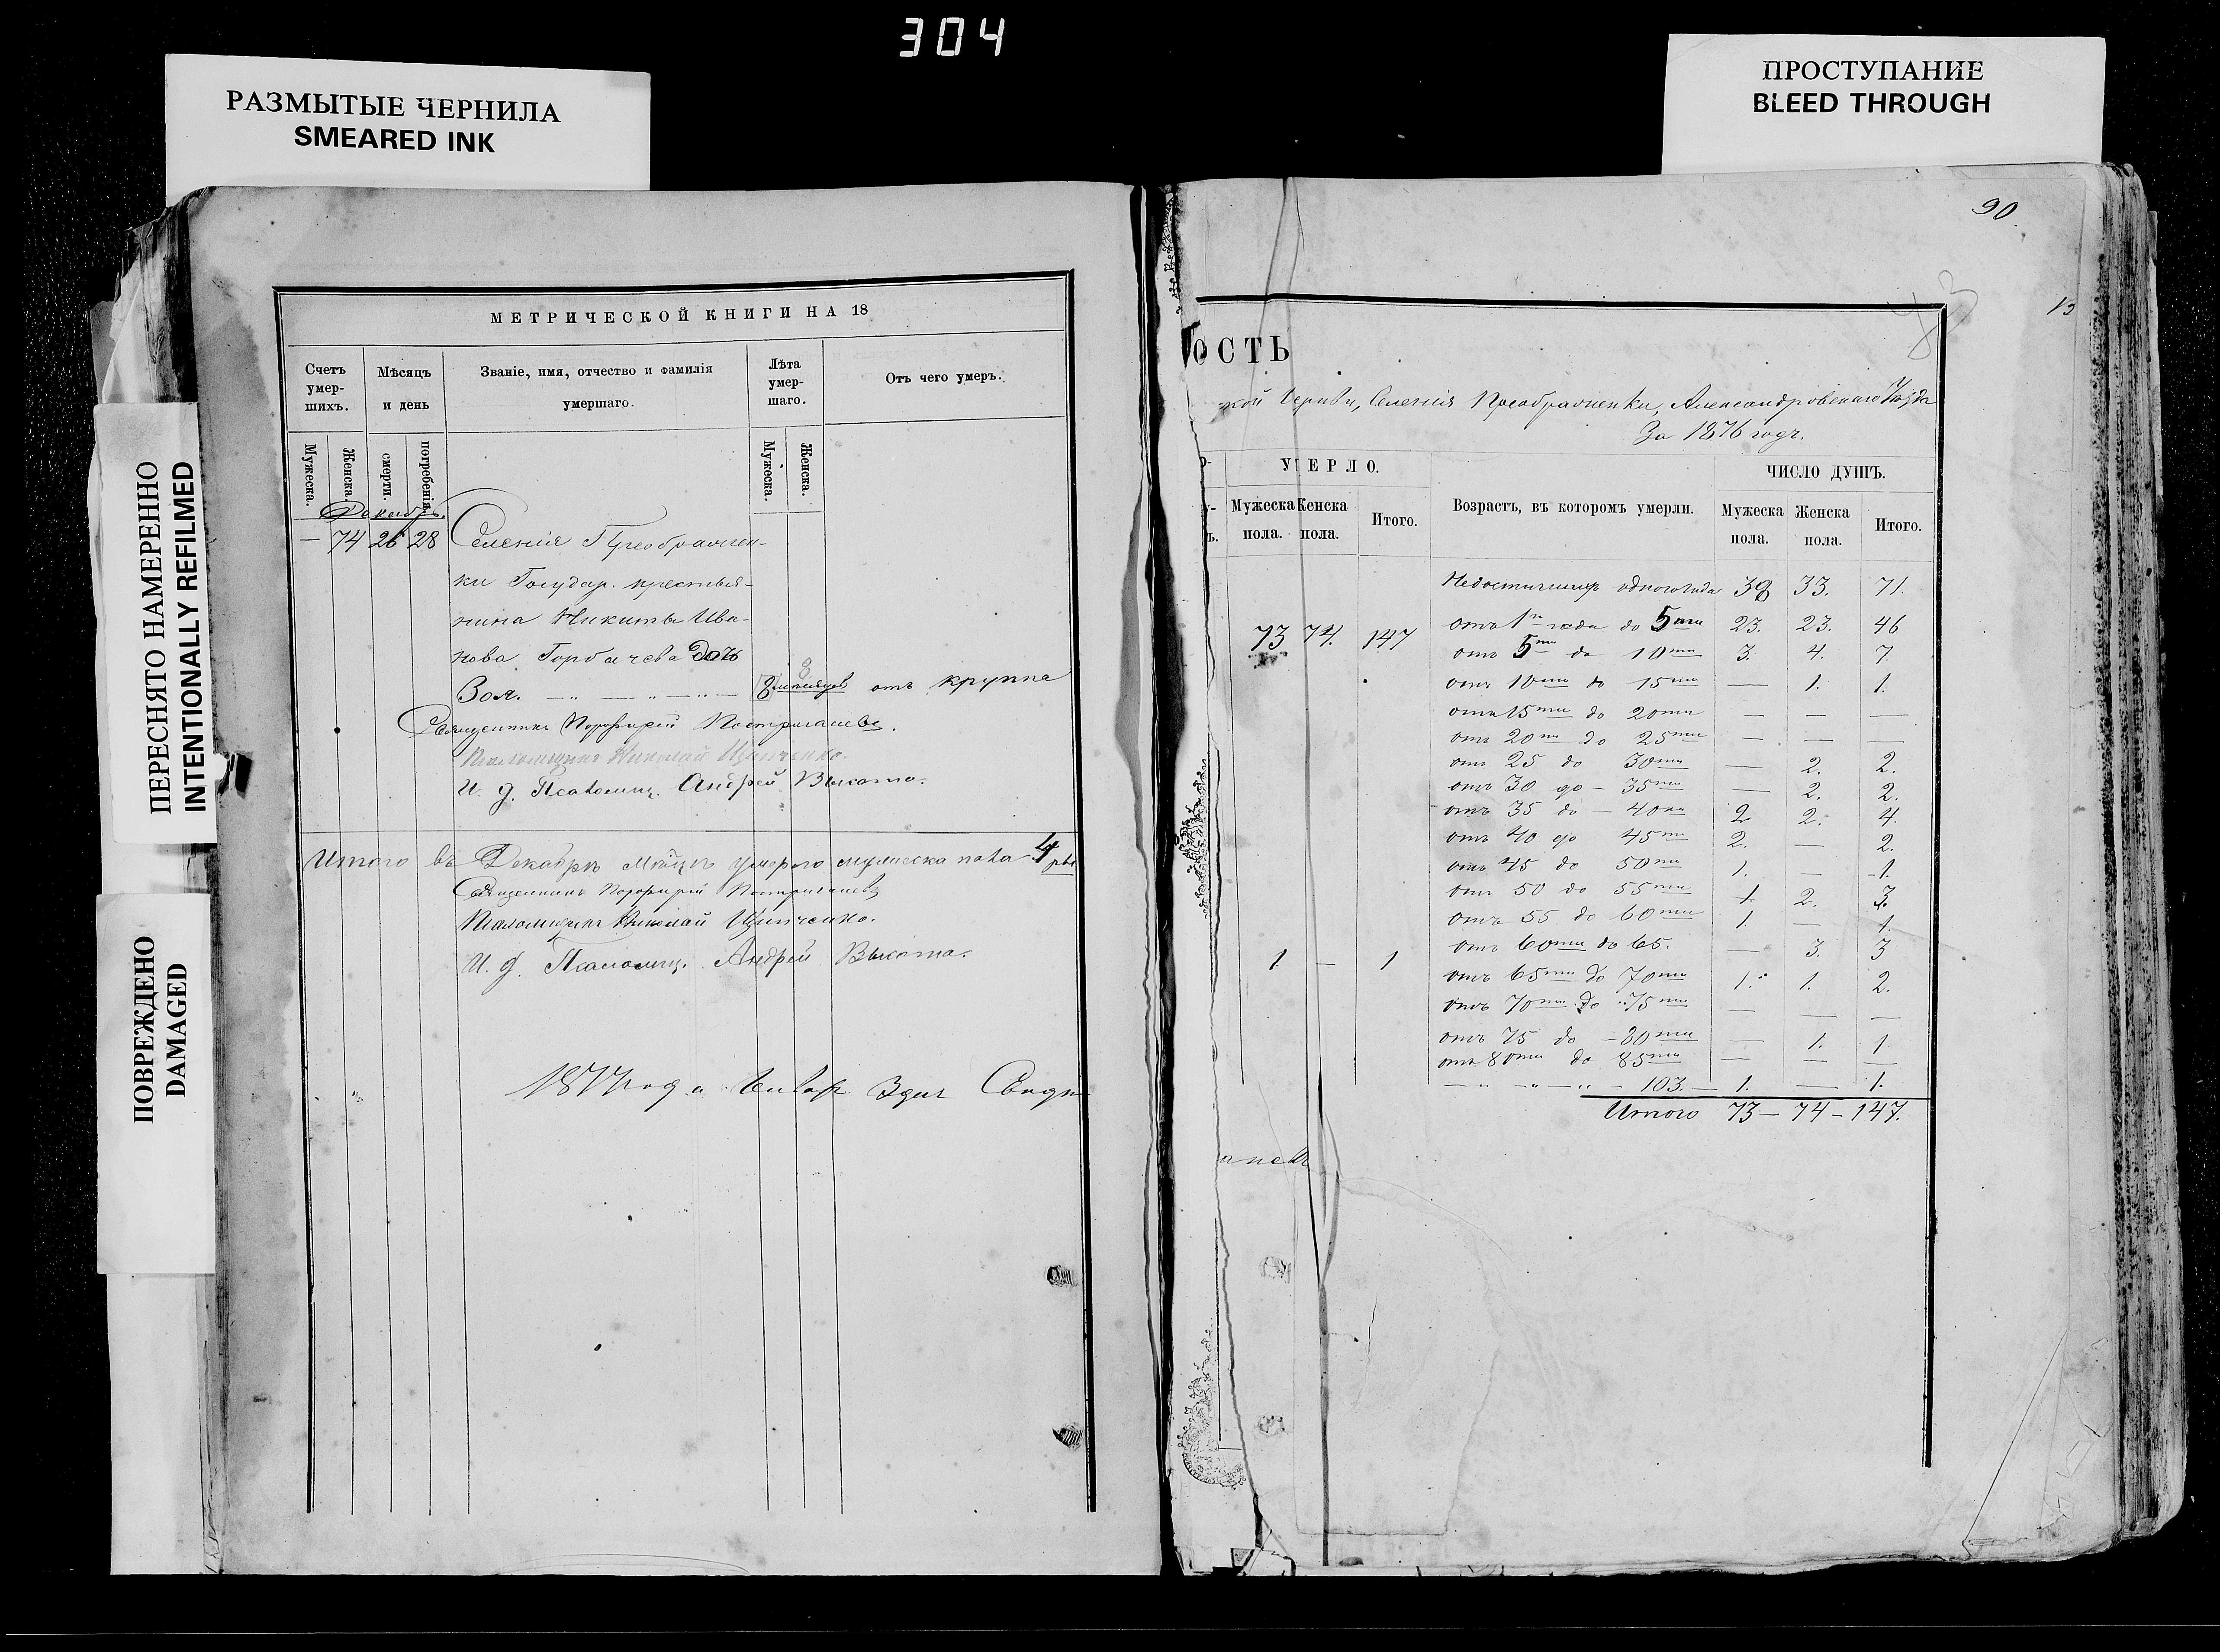 304
РАЗМЫТЫЕ ЧЕРНИЛА
SMEARED INK
ПРОСТУПАНИЕ
BLEED THROUGH
ПЕРЕСНЯТО НАМЕРЕННО
INTENTIONALLY REFILMED
ПОВРЕЖДЕНО
DAMAGED
МЕТРИЧЕСКОЙ КНИГИ НА 18
Счетъ умер- шихъ.
Мѣсяцъ и день
Званіе, имя, отчество и фамилія умершаго.
Лѣта умер- шаго.
Отъ чего умеръ.
Мужеска. Женска. смерти. погребенія. Мужеска. Женска.
Декабрь.
— 74 26 28 Селенія Преображен-
ки Государ. крестья-
нина Никиты Ива-
нова Горбачева дочь
Зоя. 8 мѣсяцевъ отъ круппа
Священникъ Порфирій
Псаломщикъ Николай
И. д. Псаломщ. Андрей Высота.
Итого въ Декабрѣ Мѣцѣ умерло мужеска пола 4ре
Священникъ Порфирій
Псаломщикъ Николай
И. д. Псаломщ. Андрей Высота.
1877 года
90
13
ОСТЬ
кой Церкви, Селенія Преображенки, Александровскаго Уѣзда
За 1876 годъ.
УМЕРЛО.
Мужеска пола. Женска пола. Итого.
Возрастъ, въ которомъ умерли.
ЧИСЛО ДУШЪ.
Мужеска пола. Женска пола. Итого.
73 74. 147
1. — 1
Недостигшихъ одного года 38 33. 71.
отъ 1го года до 5ти 23. 23. 46
отъ 5ти до 10ти 3. 4. 7
отъ 10ти до 15ти — 1. 1.
отъ 15ти до 20ти — — —
отъ 20ти до 25ти — — —
отъ 25 до 30ти — 2. 2.
отъ 30 до — 35ти — 2. 2.
отъ 35 до — 40ка 2 2. 4.
отъ 40 до 45ти 2. — 2.
отъ 45 до 50ти 1. — 1.
отъ 50 до 55ти 1. 2. 3.
отъ 55 до 60ти 1. — 1.
отъ 60ти до 65. — 3. 3
отъ 65ти до 70ти 1. 1. 2.
отъ 70ти до 75ти — — —
отъ 75 до — 80ти — 1. 1
отъ 80ти до 85ти — — —
— " — " — " — 103. — 1. — 1.
Итого 73 — 74 — 147.